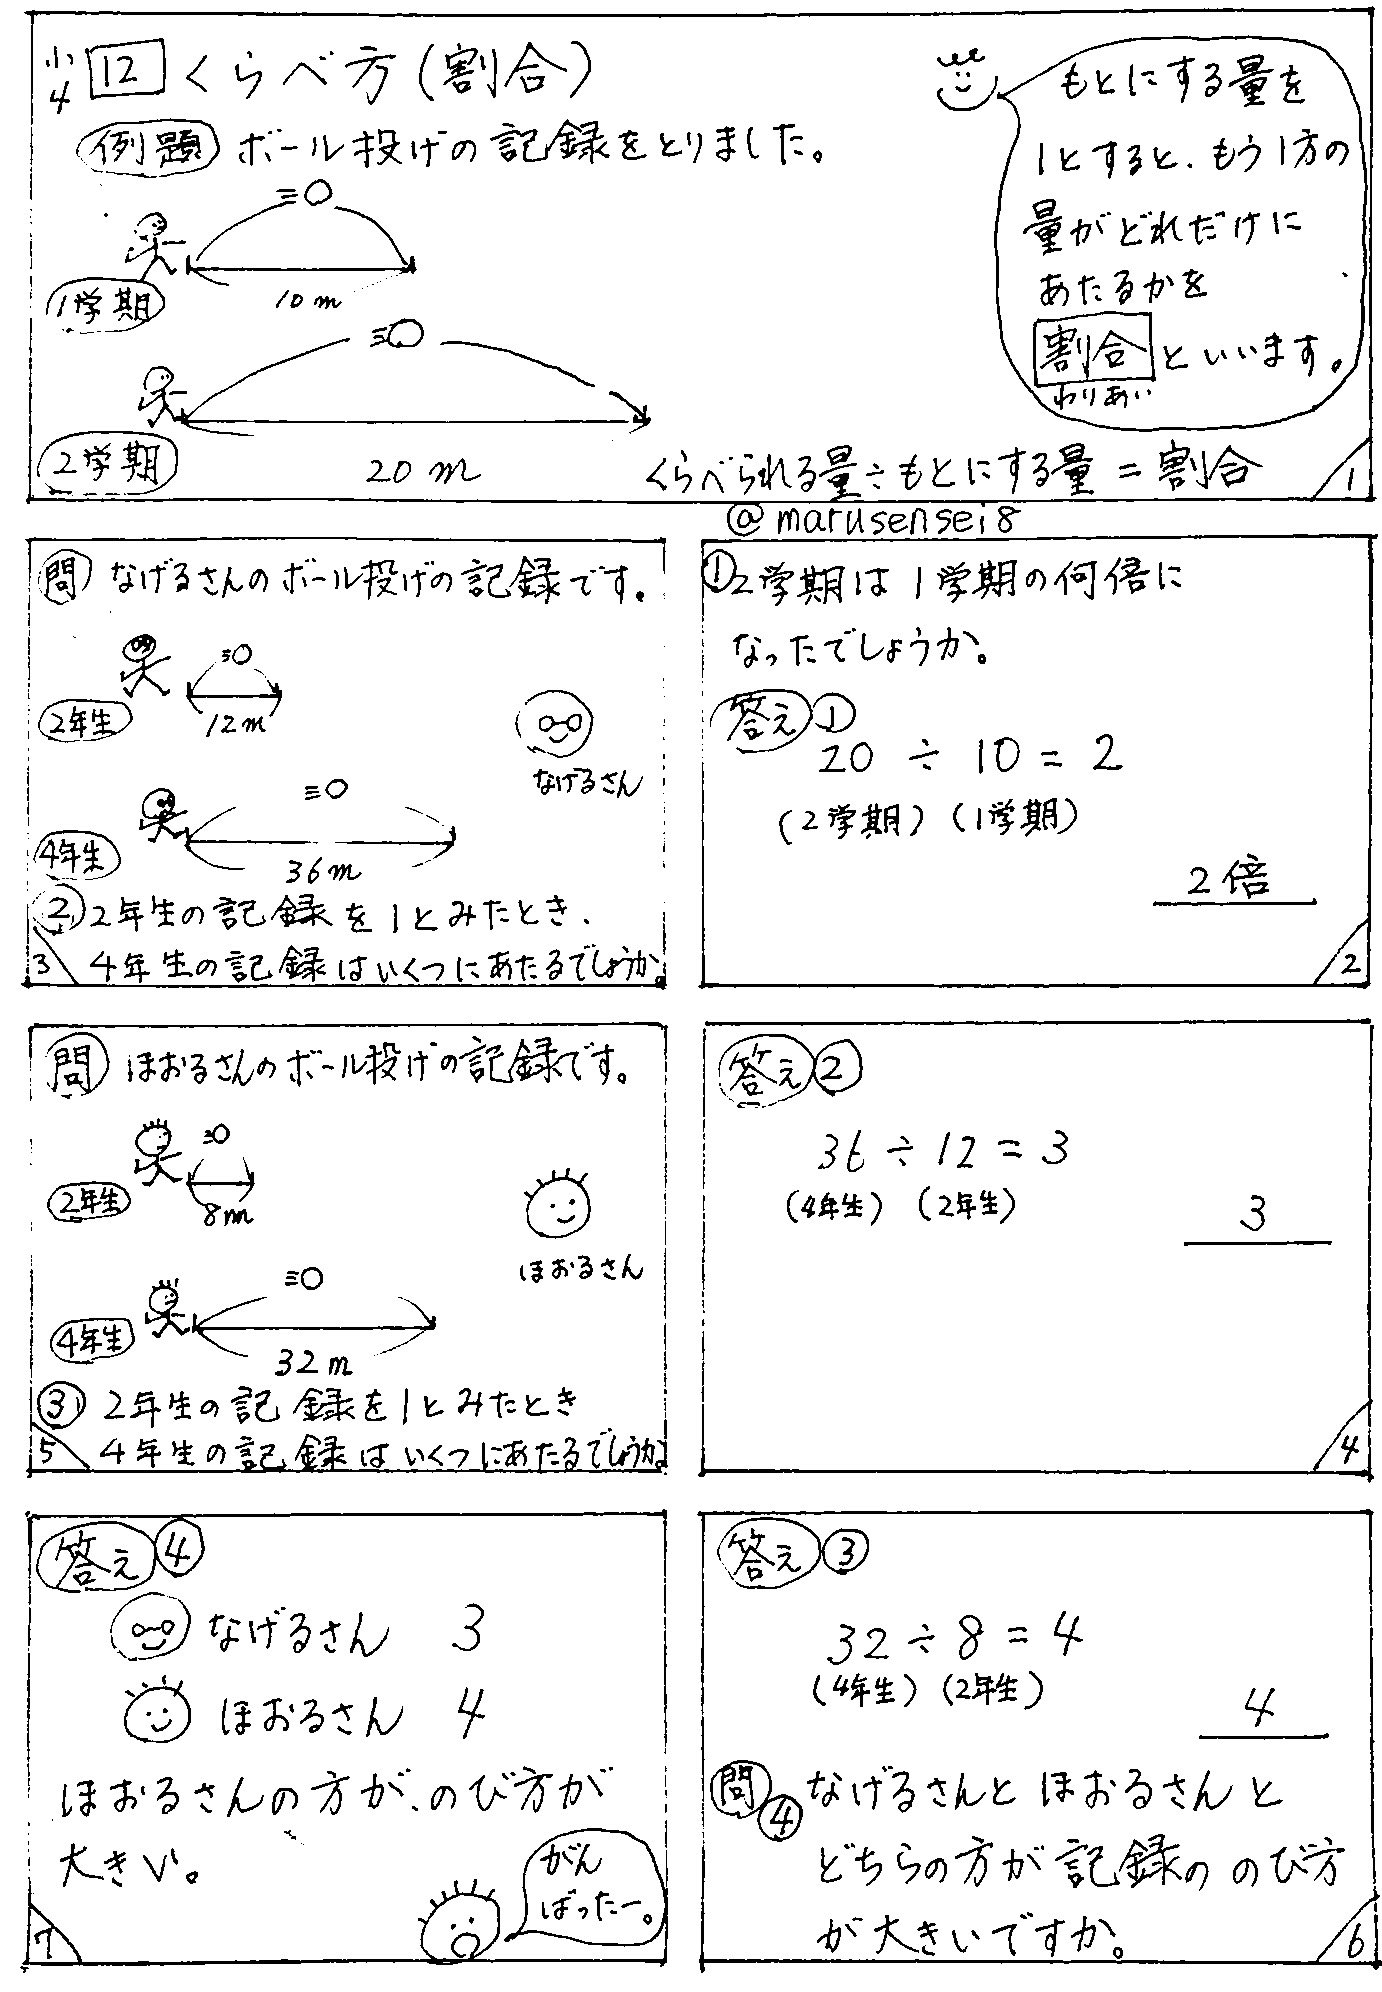 小4 12 くらべ方(割合)
例題 ボール投げの記録をとりました。
10m
1学期
20m
2学期
もとにする量を
1とすると、もう1方の
量がどれだけに
あたるかを
割合といいます。
わりあい
くらべられる量÷もとにする量=割合
1
@marusensei8
①2学期は1学期の何倍に
なったでしょうか。
答え①
20÷10=2
(2学期)(1学期)
2倍
2
問 なげるさんのボール投げの記録です。
2年生
12m
なげるさん
4年生
36m
②2年生の記録を1とみたとき、
4年生の記録はいくつにあたるでしょうか。
3
答え②
36÷12=3
(4年生)(2年生)
3
4
問 ほおるさんのボール投げの記録です。
2年生
8m
ほおるさん
4年生
32m
③2年生の記録を1とみたとき
4年生の記録はいくつにあたるでしょうか。
5
答え③
32÷8=4
(4年生)(2年生)
4
問④なげるさんとほおるさんと
どちらの方が記録ののび方
が大きいですか。
6
答え④
なげるさん 3
ほおるさん 4
ほおるさんの方が、のび方が
大きい。
がん
ばったー。
7